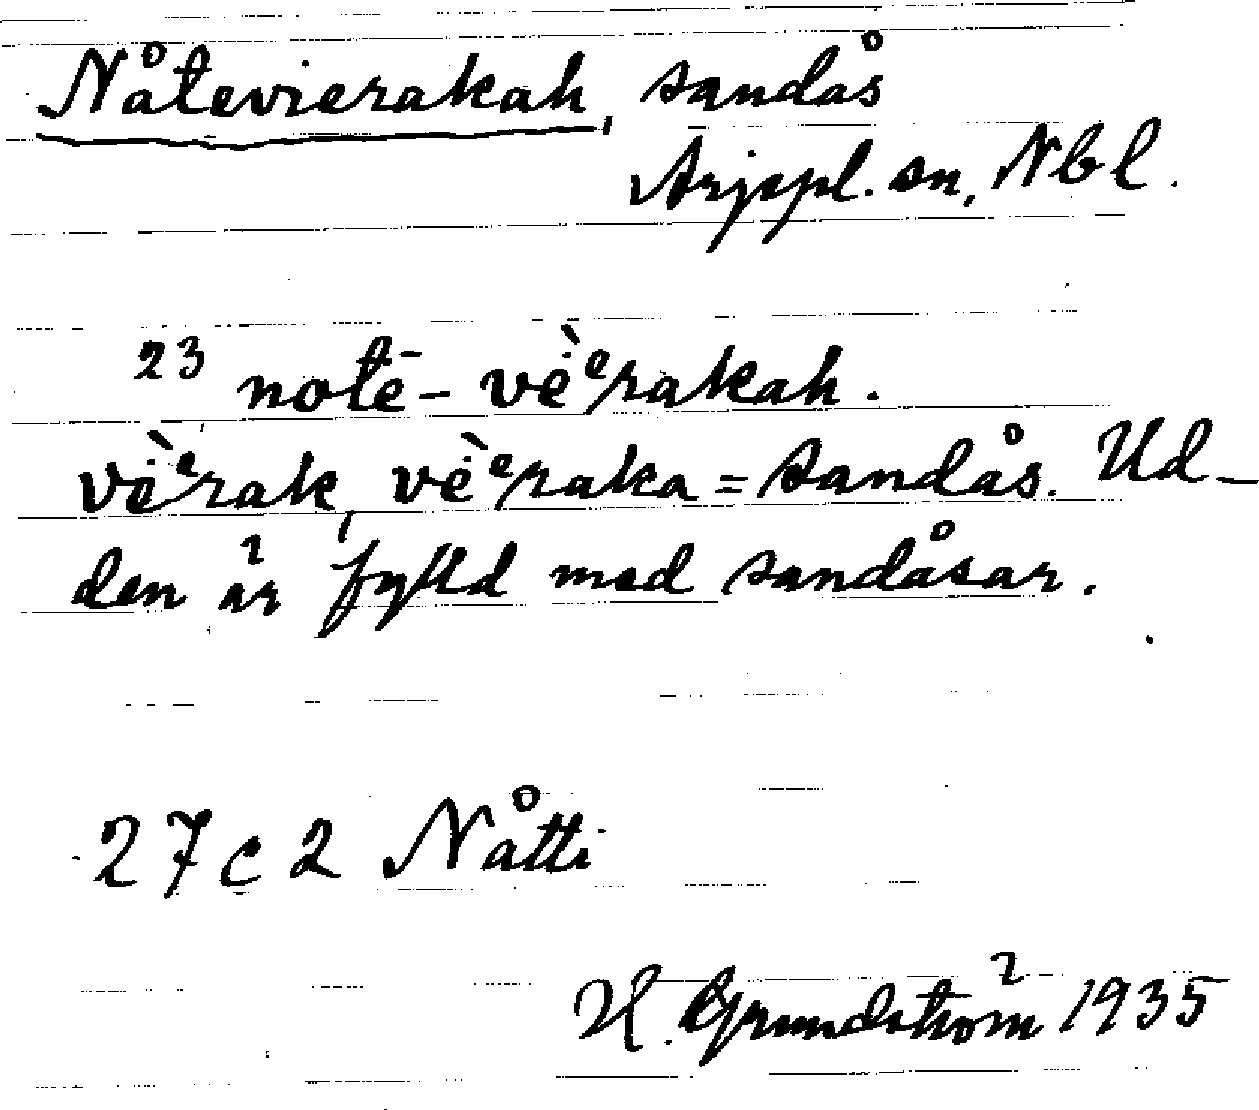 Nåtevierakah, sandås
Arjepl. sn, Nbl.
23 notē- vė̀ᵉrakah.
vė̀ᵉrak, vė̀ᵉraka = sandås. Ud-
den är fylld med sandåsar.
27 c 2 Nåtti
H. Grundström 1935